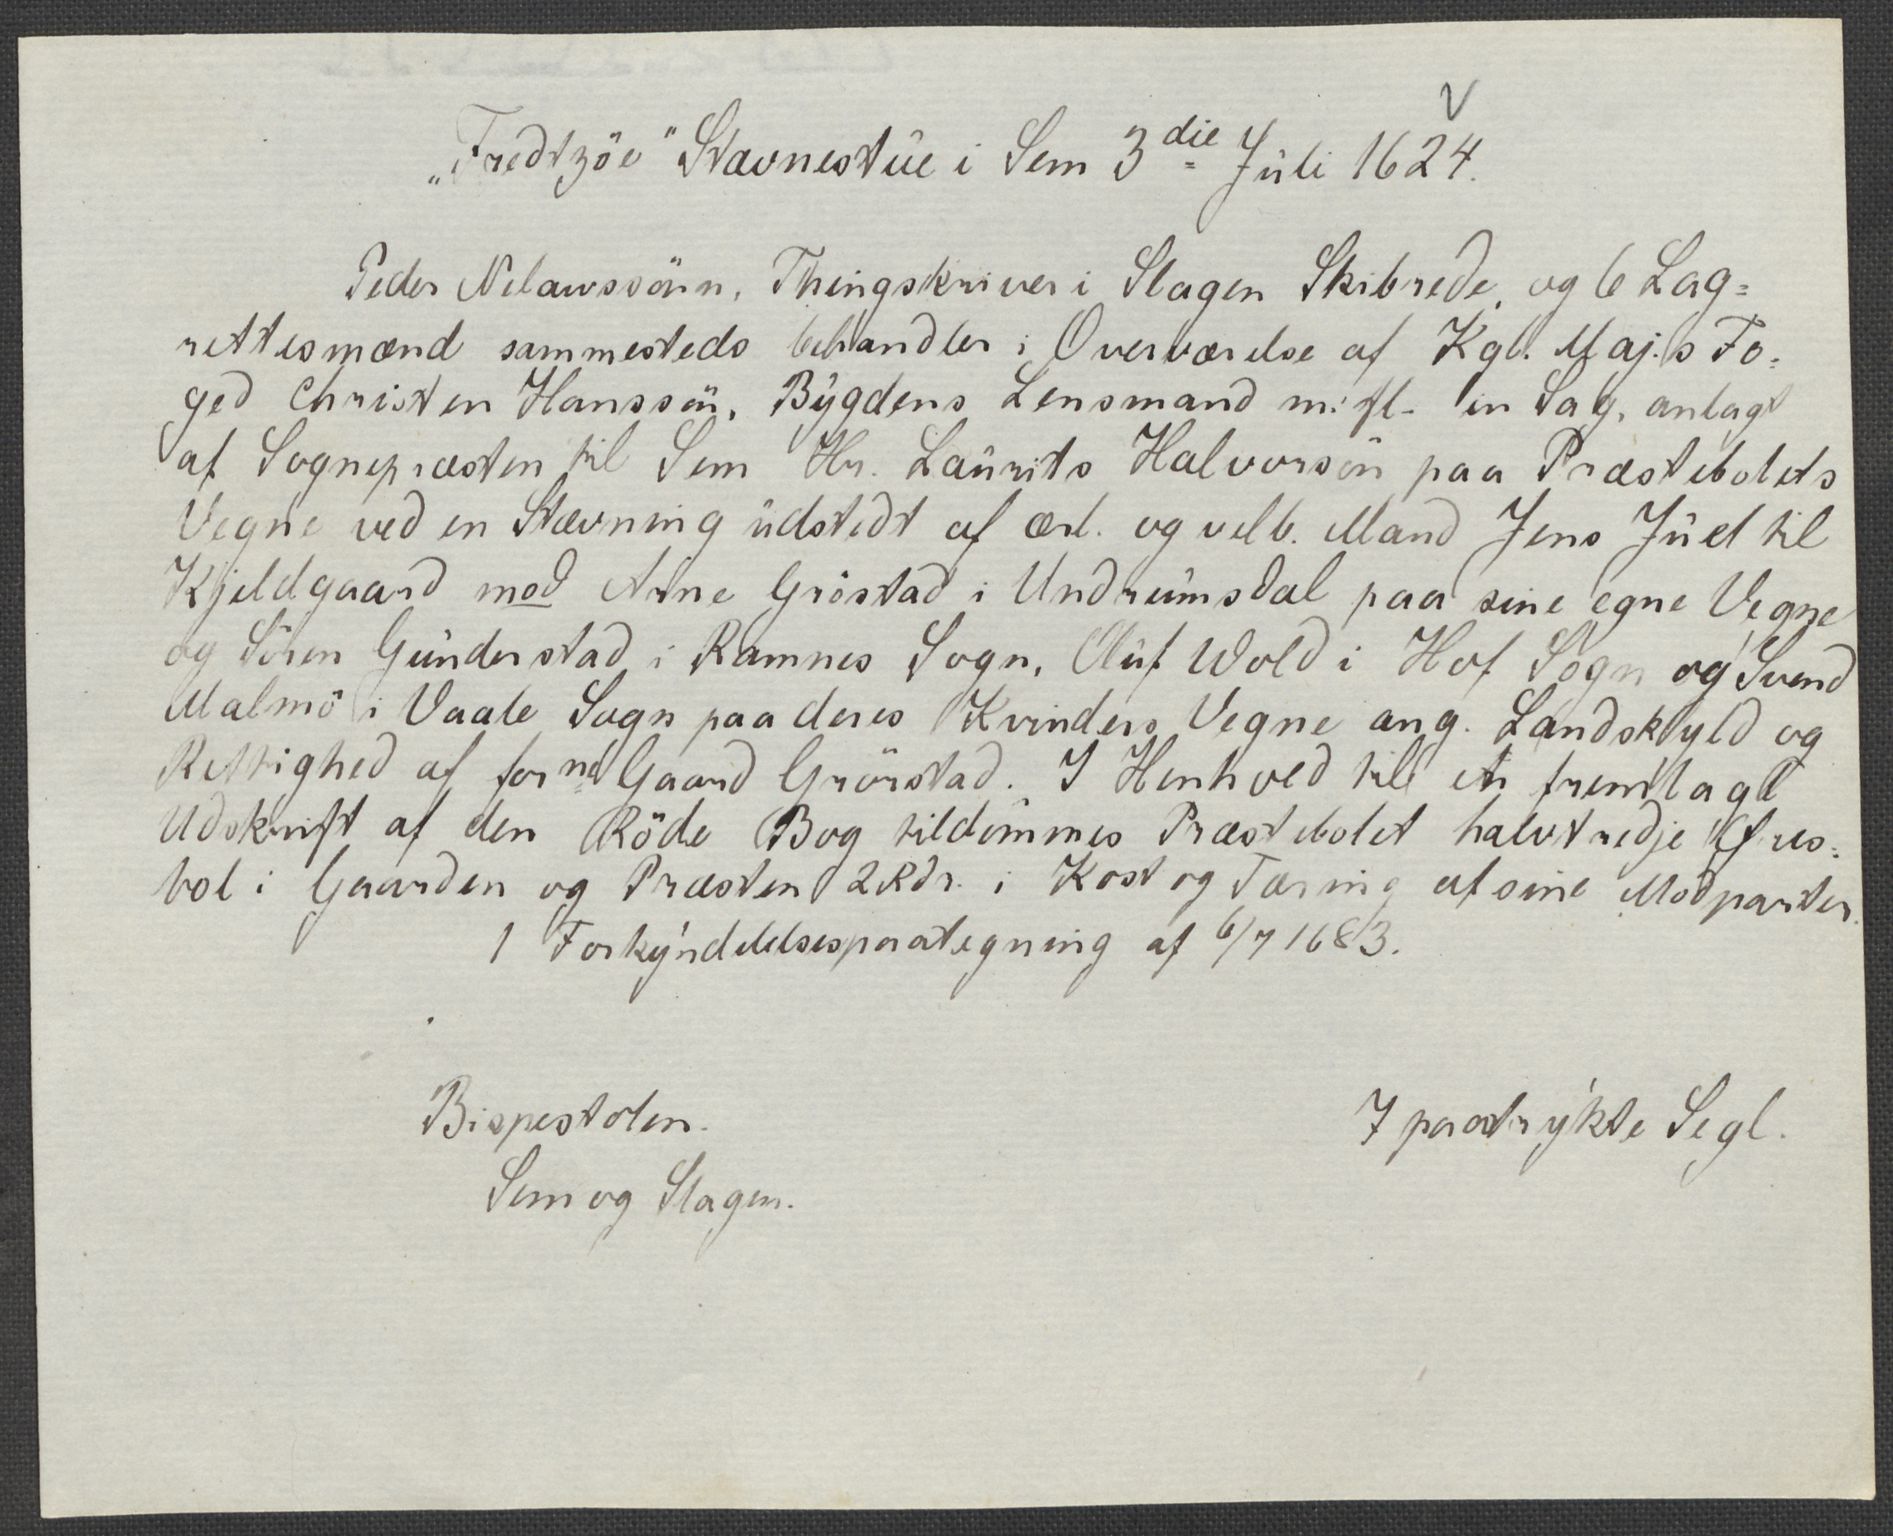 V
„Fredtzöe" Stævnestue i Sem 3die Juli 1624.
Peder Nilaussönn, Thingskriver i Slagen Skibrede, og 6 Lag=
rettesmænd sammesteds behandler i Overværelse af Kgl. Maj.s Fo=
ged Christen Hanssön, Bygdens Lensmand m. fl. en Sag, anlagt
af Sognepræsten til Sem Hr. Laurits Halvorsön paa Præstebolets
Vegne ved en Stævning udstedt af ærl. og velb. Mand Jens Juel til
Kjeldgaard mod Arne Gröstad i Undrumsdal paa sine egne Vegne
og Sören Gunderstad i Ramnes Sogn, Oluf Wold i Hof Sogn og Svend
Malmö i Vaale Sogn paa deres Kvinders Vegne ang. Landskyld og
Rettighed af forne Gaard Grörstad. I Henhold til et fremlagt
Udskrift af den Röde Bog tildömmes Præstebolet halvtredje Öres=
bol i Gaarden og Præsten 2 Rdr. i Kost og Tæring af sine Modparter.
1 Forkyndelsespaategning af 6/7 1683.
Bispestolen.
7 paatrykte Segl.
Sem og Slagen.